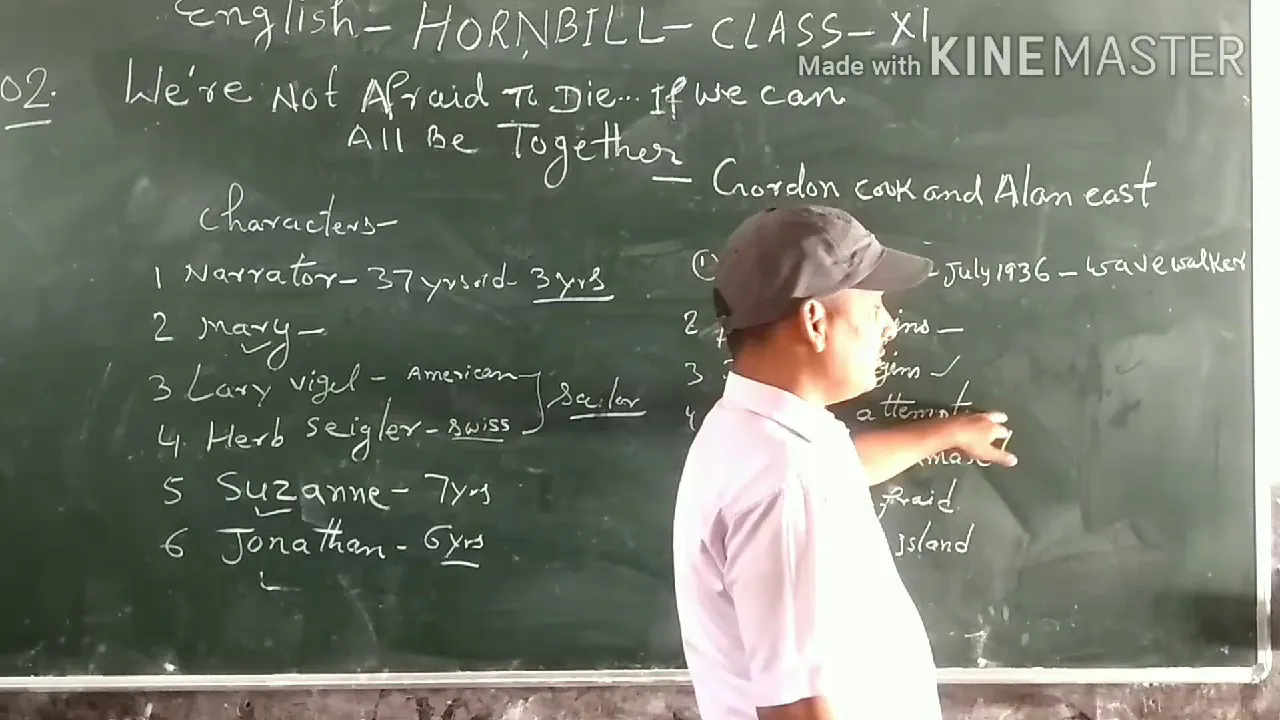 English - HORNBILL - CLASS - XI
Made with KINEMASTER
02. We're Not Afraid To Die... If we can
All Be Together
- Gordon cook and Alan east
Characters -
1 Narrator - 37 yrs.old - 3 yrs
2 Mary -
3 Lary vigel - American
4. Herb Seigler - swiss
Sailor
5 Suzanne - 7 yrs
6 Jonathan - 6 yrs
① - July 1936 - wavewalker
2
3 ✓
4 attempt
fraid
island